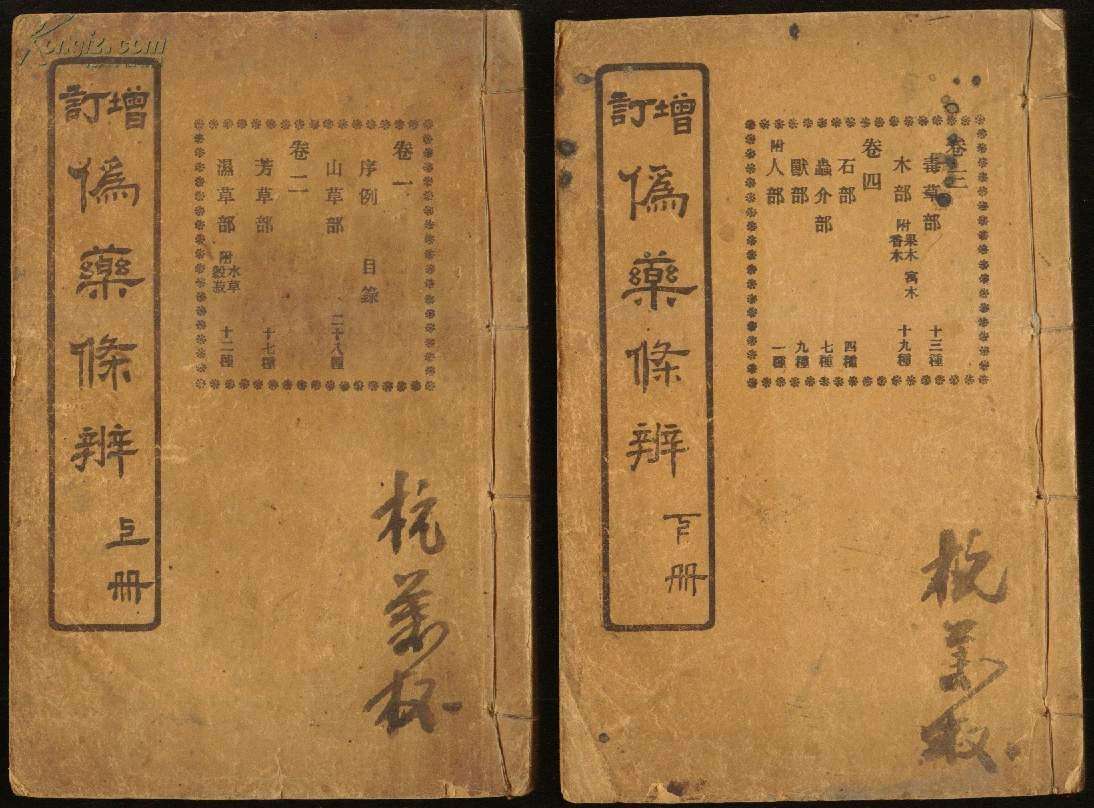 Kongfz.com
增訂
偽藥條辨
上冊
卷一
序例 目錄
山草部 二十八種
卷二
芳草部 十七種
濕草部 附水草穀菽 十二種
增訂
偽藥條辨
下冊
卷三
毒草部 十三種
木部 附果木香木寓木 十九種
卷四
石部 四種
蟲介部 七種
獸部 九種
附人部 一種